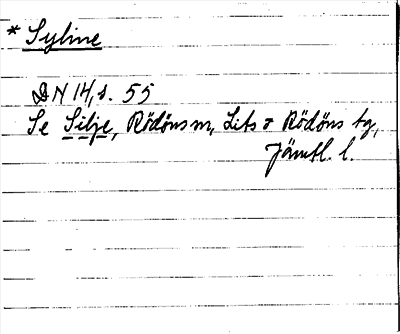 * Syline
DN 14, s. 55
Se Silje, Rödöns sn, Lits o Rödöns tg,
Jämtl. l.